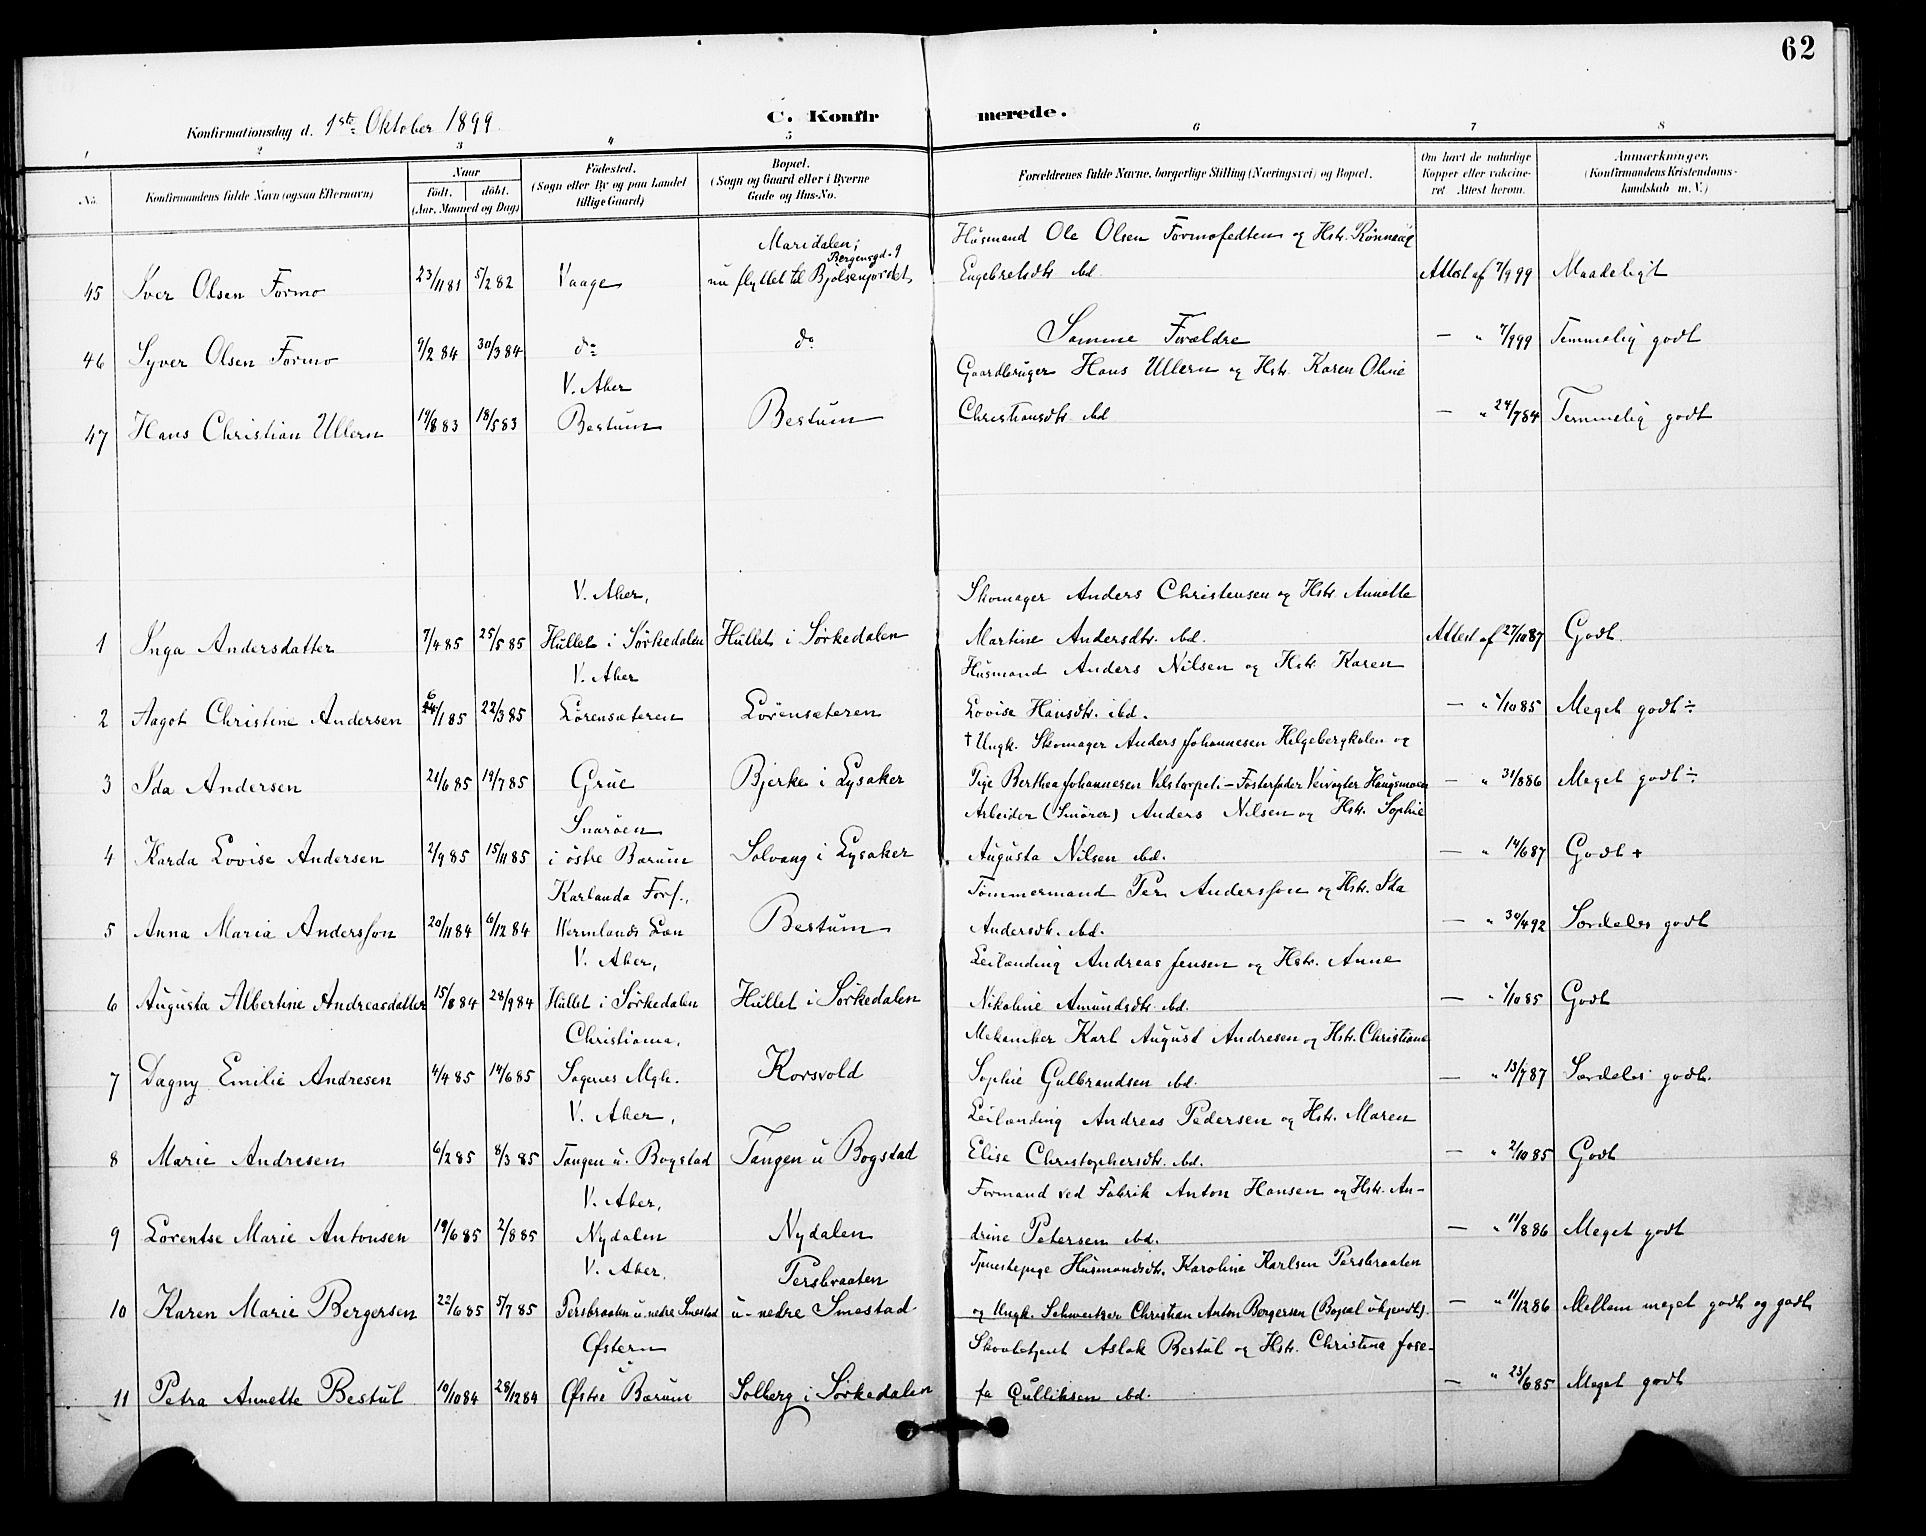 62
Konfirmationsdag d. 1ste Oktober 1899.
C. Konfirmerede.
1 2 3 4 5 6 7 8
No. Konfirmandens fulde Navn (ogsaa Efternavn) Naar født. døbt. (Aar, Maaned og Dag) Fødested. (Sogn eller By og paa Landet tillige Gaard) Bopæl. (Sogn og Gaard eller i Byerne Gade og Hus-No. Forældrenes fulde Navne, borgerlige Stilling (Næringsvei) og Bopæl. Om havt de naturlige Kopper eller vaccineret Attest herom. Anmærkninger. (Konfirmandens Kristendomskundskab m. V.)
Maridalen; Husmand Ole Olsen Formofedten og Hstr. Rönnaug
Bergensgd. 9
45 Iver Olsen Formo 23/11 81 5/2 82 Vaage nu flyttet til Bjølsenjordet Engebretsdtr. ibd. Attest af 7/9 99 Maadeligt
46 Syver Olsen Formo 9/2 84 30/3 84 do do Samme Forældre — " 7/9 99 Temmelig godt
V. Aker Gaardbruger Hans Ullern og Hstr. Karen Oline
47 Hans Christian Ullern 14/3 83 18/5 83 Bestum Bestum Christiansdtr. ibd — " 24/7 84 Temmelig godt
V. Aker, Skomager Anders Christensen og Hstr. Annette
1 Inga Andersdatter 7/4 85 25/5 85 Hullet i Sørkedalen Hullet i Sørkedalen Martine Andersdtr. ibd. Attest af 27/10 87 Godt.
V. Aker Husmand Anders Nilsen og Hstr. Karen
2 Aagot Christine Andersen 6/1 85 22/3 85 Lörensæteren Lörensæteren Lovise Hansdtr. ibd. — " 1/10 85 Meget godt ÷
† Ungk. Skomager Anders Johannesen Helgebergkolen og
3 Ida Andersen 21/6 85 19/7 85 Grue Bjerke i Lysaker Pige Berthea Johannesen — Fosterfader Veivogter — " 31/8 86 Meget godt ÷
Snarøen Arbeider (Smører) Anders Nilsen og Hstr. Sophie
4 Karda Lovise Andersen 2/9 85 15/11 85 i östre Bærum Solvang i Lysaker Augusta Nilsen ibd. — " 14/6 87 Godt +
Karlanda Fors., Tømmermand Per Andersson og Hstr. Ida
5 Anna Maria Andersson 20/11 84 6/12 84 Wermlands Læn Bestum Andersdtr. ibd. — " 30/4 92 Særdeles godt
V. Aker, Leilænding Andreas Jensen og Hstr. Anne
6 Augusta Albertine Andreasdatter 15/8 84 28/9 84 Hullet i Sörkedalen Hullet i Sörkedalen Nikoline Amundsdtr. ibd. — " 1/10 85 Godt
Christiania, Mekaniker Karl August Andresen og Hstr. Christiane
7 Dagny Emilie Andresen 4/4 85 14/6 85 Sagenes Mgh. Korsvold Sophie Gulbrandsen ibd. — " 13/7 87 Særdeles godt.
V. Aker, Leilænding Andreas Pedersen og Hstr. Maren
8 Marie Andresen 6/2 85 8/3 85 Tangen u. Bogstad Tangen u Bogstad Elise Christophersdtr. ibd. — " 2/10 85 Godt
V. Aker, Formand ved Fabrik Anton Hansen og Hstr. An-
9 Lorentse Marie Antonsen 19/6 85 2/8 85 Nydalen Nydalen drine Petersen ibd. — " 11/8 86 Meget godt
V. Aker, Persbraaten Tjenestepige Husmandsdtr. Karoline Karlsen Persbraaten
10 Karen Marie Bergersen 22/6 85 5/7 85 Persbraaten u. nedre Smestad u. nedre Smestad og Ungk. Schweitzer Christian Anton Bergersen (Bopæl ukjendt). — " 11/12 86 Mellem meget godt og godt
Østern Skovbetjent Aslak Bestul og Hstr. Christina Jose-
11 Petra Annette Bestul 10/10 84 28/12 84 i Østre Bærum Solberg i Sörkedalen fa Gulliksen ibd. — " 23/6 85 Meget godt